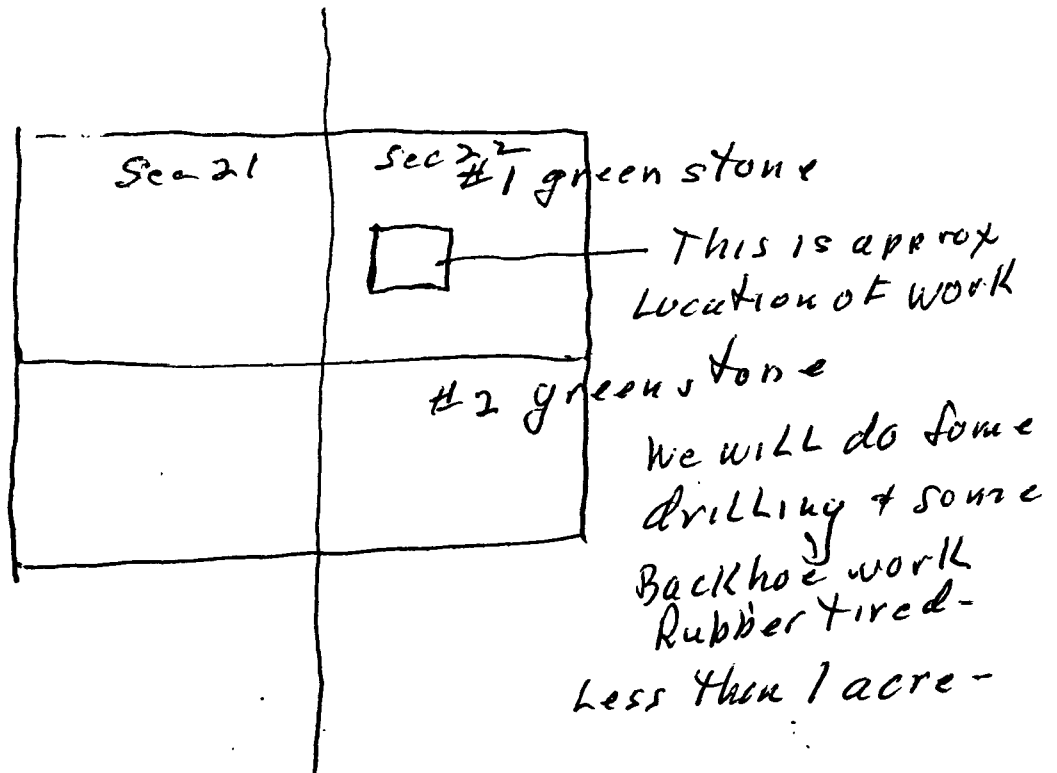 Sec 21
Sec 22
#1 greenstone
This is aprox
Location of work
#2 greenstone
We will do some
drilling & some
Backhoe work
Rubber tired-
Less than 1 acre-